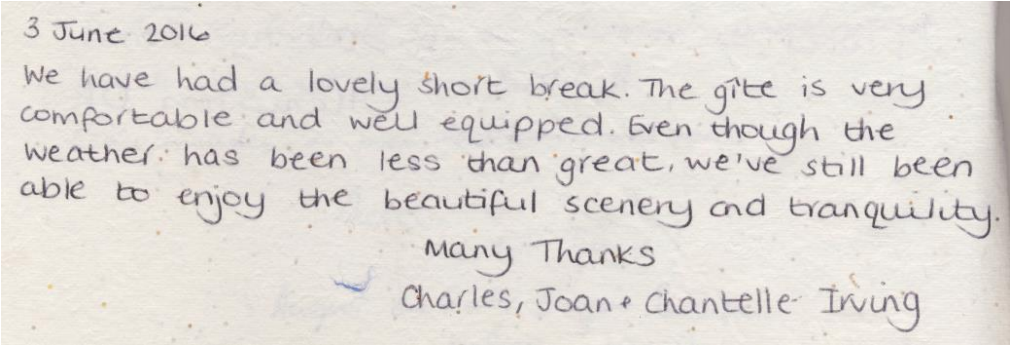 3 June 2016
We have had a lovely short break. The gîte is very
comfortable and well equipped. Even though the
weather has been less than great, we've still been
able to enjoy the beautiful scenery and tranquility.
Many Thanks
Charles, Joan + Chantelle Irving